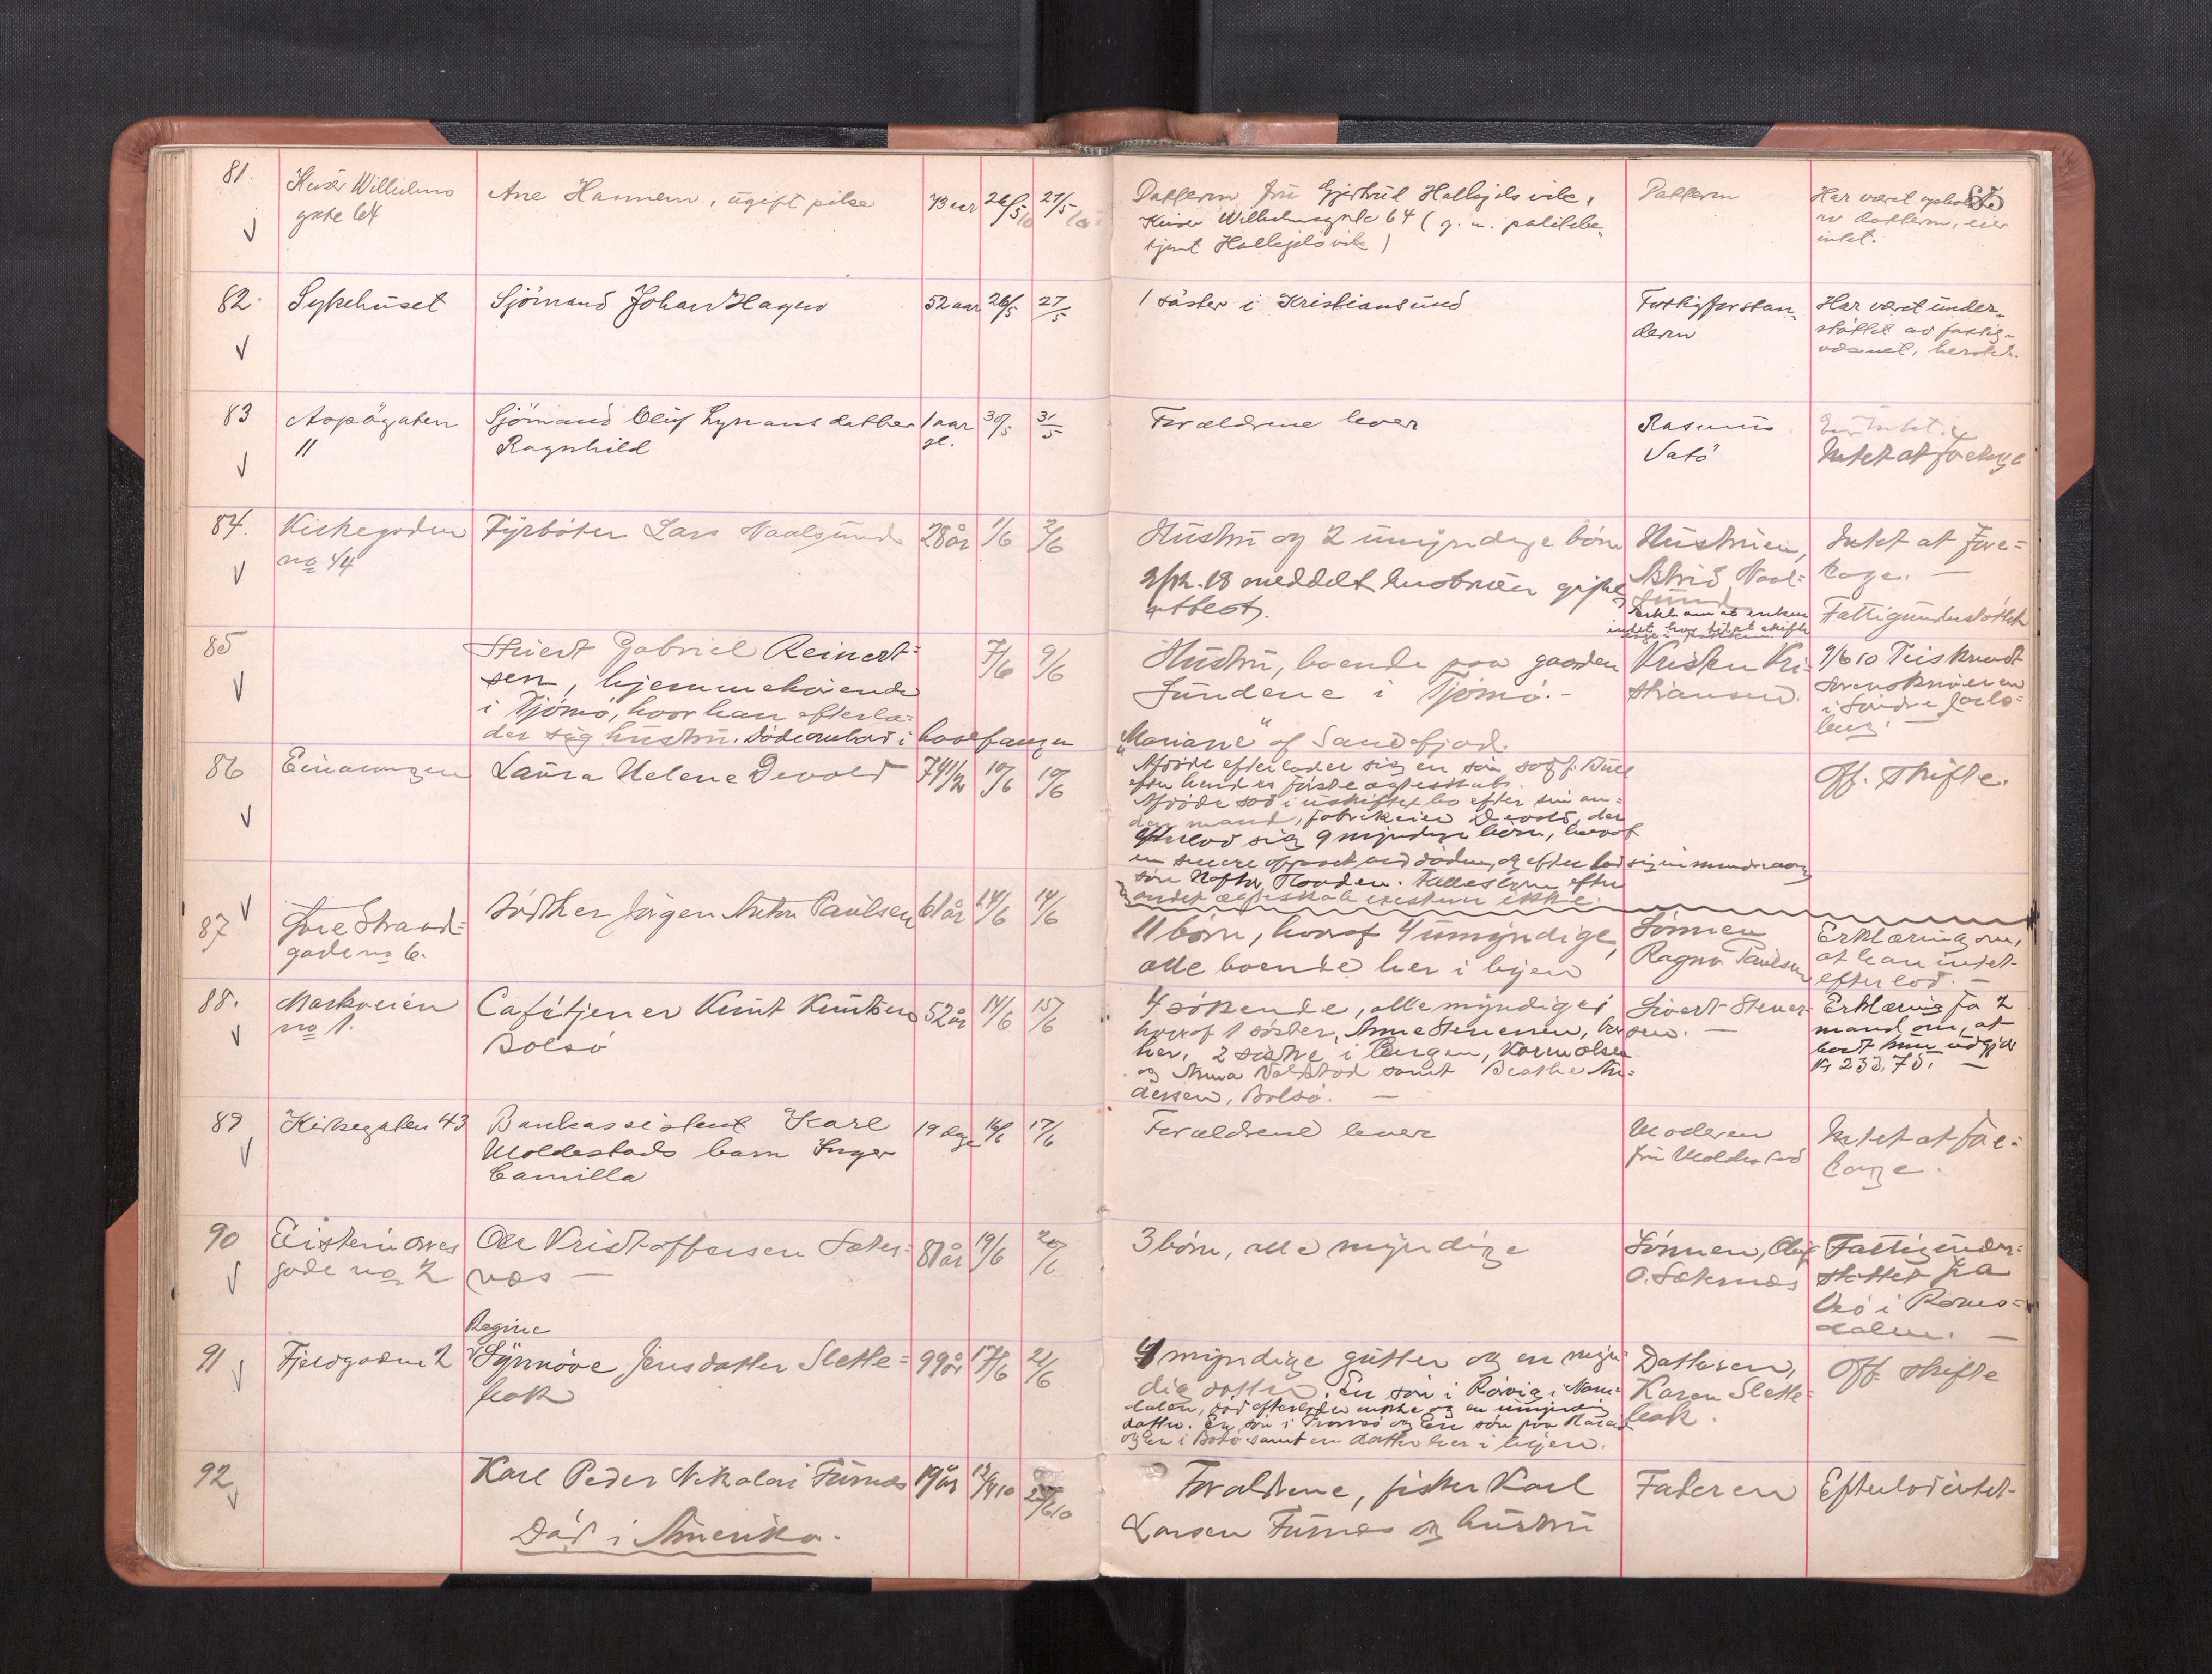 85
81
Keiser Wilhelms
gate 64
Ane Hannem, ugift pike
73 aar
26/5 10
27/5 10
Datteren fru Gjertrud Hallkjelsvik,
Keiser Wilhelmsgate 64 (g. m. politibe-
tjent Hallkjelsvik)
Datteren
Har været
av datteren, eier
intet.
82
Sykehuset
Sjömand Johan Hagen
52 aar
26/5
27/5
1 söster i Kristiansund
Fattigforstan-
deren
Har været under-
støttet av fattig-
væsenet, hersteds.
83
Aspögaten
11
Sjömand Oluf datter
Ragnhild
1 aar
gl.
30/5
31/5
Forældrene lever
Rasmus
Satö
Eier intet.
Intet at foretage
84.
Kirkegaden
no 44
Fyrbøter Lars Naalsund
28 år
1/6
2/6
Hustru og 2 umyndige børn
2/12.18 meddelt hustruen gifte
attest.
Hustruen,
Astrid Naal-
sund
Intet at fore-
tage. —
Fattigunderstøttet
85
Stuert Gabriel Reinert-
sen, hjemmehørende
i Tjömö, hvor han efterla-
der sig hustru. Döde ombord i hvalfanger
7/6
9/6
Hustru, boende paa gaarden
Sundene i Tjømø. -
"Mariane" af Sandefjord.
Kristen Kri-
stiansen.
9/6 10 Tilskrevet
Sorenskriveren
i Søndre Jarls-
berg. —
86
Laura Helene Devold
74 1/2
10/6
10/6
Afdøde efterlader sig en søn
fra hendes første ægteskab.
Afdøde sad i uskiftet bo efter sin an-
den mand, fabrikeier Devold, der
efterlod sig 9 myndige børn, hvoraf
en senere ved døden, og efterlod sig en mindreaarig
søn Fællesbørn efter
andet ægteskab existerer ikke.
Off. skifte.
87
Øvre Strand-
gade no 6.
Jørgen Anton Paulsen
61 år
14/6
14/6
11 børn, hvoraf 4 umyndige,
alle boende her i byen
Sønnen
Ragnv. Paulsen
Erklæring om,
at han intet
efterlod. —
88.
Markveien
no 1.
Cafétjener Knut Knutsen
Bolsø
52 år
14/6
15/6
4 søskende, alle myndige,
hvoraf 1 søster, Anne Stenersen, bor
her, 2 søstre i Bergen, Karen Olsen
og Anna samt Beathe An-
dersen, Bolsø. —
Sivert Stener-
sen. —
Erklæring fra 2
mand om, at
boet kun udgjør
Kr 233,75. —
89
Kirkegaten 43
Bankassistent Karl
Moldestads barn Inger
Camilla
19 dage
16/6
17/6
Forældrene lever
Moderen
fru Moldestad
Intet at fore-
tage.
90
gade no 2
Ole Kristoffersen Sæter-
næs —
81 år
19/6
20/6
3 børn, alle myndige
Sønnen, Oluf
O. Sæternæs
Fattigunder-
støttet fra
Veø i Roms-
dalen. —
91
Fjeldgaden 2
Regine
Synnøve Jensdatter Slette-
bak
99 år
17/6
21/6
4 myndige gutter og en myn-
dig datter. En søn i Rørvig i Nam-
dalen, død efterlader enke og en umyndig
datter. En søn i Tromsø og En søn paa
og En i Bodø samt en datter her i byen.
Datteren,
Karen Slette-
bak.
Off. skifte
92
Karl Peder Nikolai Furnæs
Död i Amerika.
19 år
12/4 10
6 10
Forældrene, fisker Karl
Larsen Furnæs og hustru
Faderen
Efterlod intet